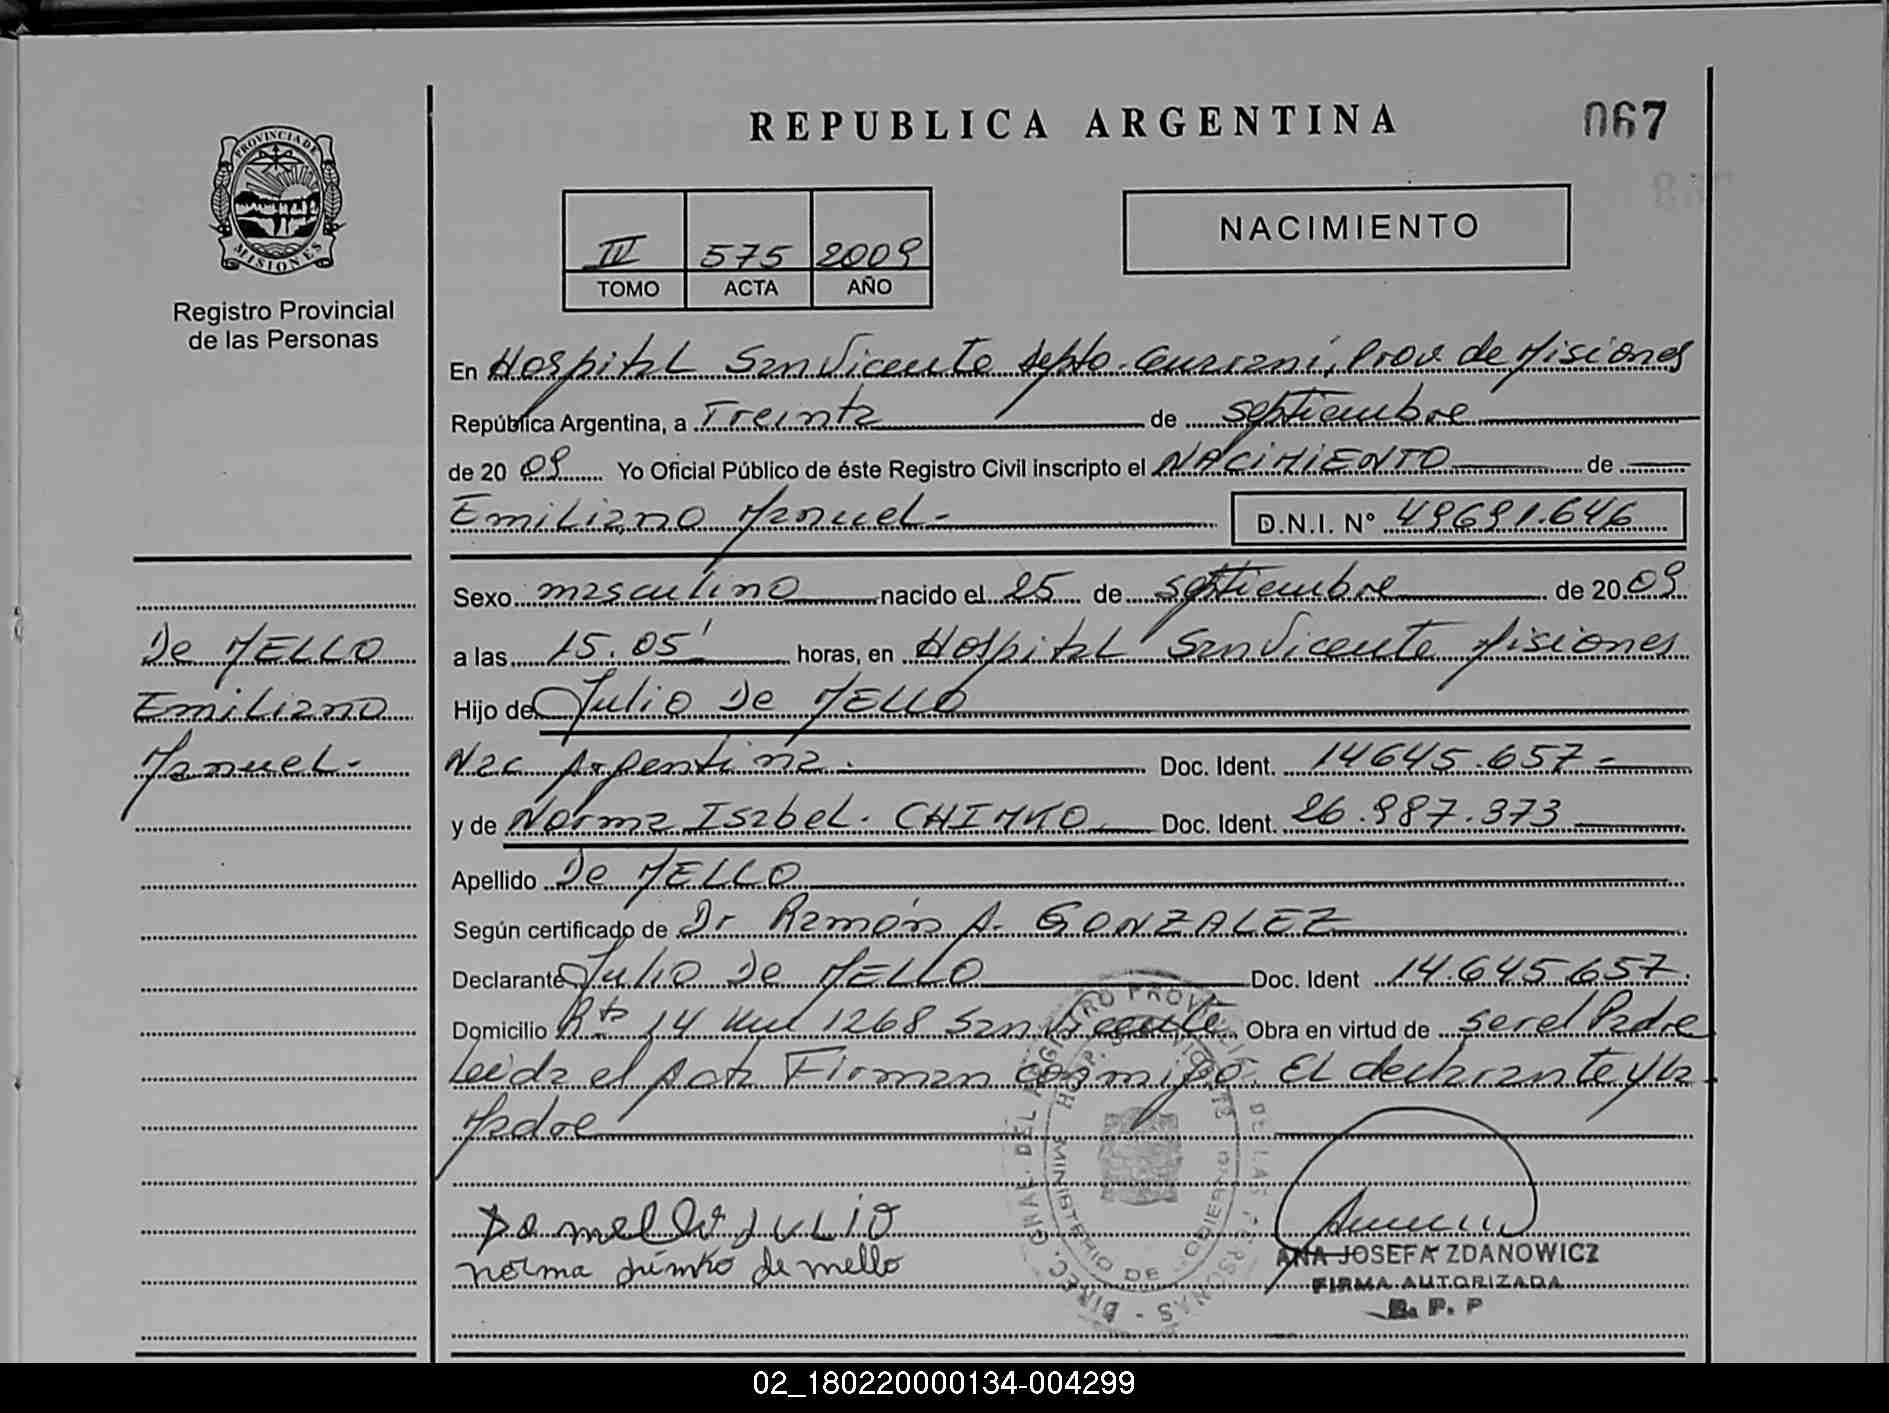 REPUBLICA ARGENTINA
067
PROVINCIA DE
MISIONES
Registro Provincial
de las Personas
IV 575 2009
TOMO ACTA AÑO
NACIMIENTO
En Hospital San Vicente depto. Guaraní, Prov. de Misiones
República Argentina, a Treinta de septiembre
de 20 09 Yo Oficial Público de éste Registro Civil inscripto el NACIMIENTO de
Emiliano Manuel-
D.N.I. N° 49691.646
Sexo masculino nacido el 25 de septiembre de 20 09
a las 15.05' horas, en Hospital San Vicente Misiones
Hijo de Julio De MELLO
Nac Argentina. Doc. Ident. 14645.657-
y de Norma Isabel. CHIMKO Doc. Ident. 26.987.373
Apellido De MELLO
Según certificado de Dr Ramón A. GONZALEZ
Declarante Julio De MELLO Doc. Ident 14.645.657.
Domicilio Rta 14 km 1268 San Vicente Obra en virtud de ser el Padre
Leida el Acta Firman conmigo. El declarante y la
Madre
De MELLO
Emiliano
Manuel-
De mello JULIO
norma de mello
DIREC. GRAL. DEL REGISTRO PROVINCIAL DE LAS PERSONAS -
HOSP. S. VICENTE
MINISTERIO DE GOBIERNO
ANA JOSEFA ZDANOWICZ
FIRMA AUTORIZADA
R. P. P
02_180220000134-004299